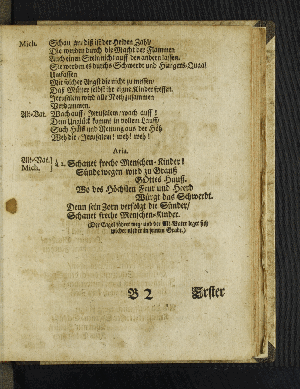 Mich. Schau an: diß ist der Heiden Zahl/
Die werden durch die Macht der Flammen
Auch einen Stein nicht auff den andern lassen.
Sie werden es durchs Schwerdt und Hungers-Quaal
Umfassen
Mit solcher Angst die nicht zu messen/
Daß Mütter selbst ihr eigne Kinder fressen.
Jerusalem wird alle Noth zusammen
Verdammen.
Alt-Vat. Wach auff/ Jerusalem/ wach auff!
Dein Unglück kommt in vollem Lauff/
Such Hülff und Rettung aus der Höh
Weh dir/ Jerusalem! weh! weh!
Aria.
Alt-Vat. Mich. à 2. Schauet freche Menschen-Kinder!
Sünde wegen wird zu Grauß
GOttes Hauß.
Wo des Höchsten Feur und Heerd
Würgt das Schwerdt.
Denn sein Zorn verfolgt die Sünder/
Schauet freche Menschen-Kinder.
(Der Engel führet weg/ und der Alt-Vater leget sich
wieder nieder in seinem Grabe.)
B 2 Erster